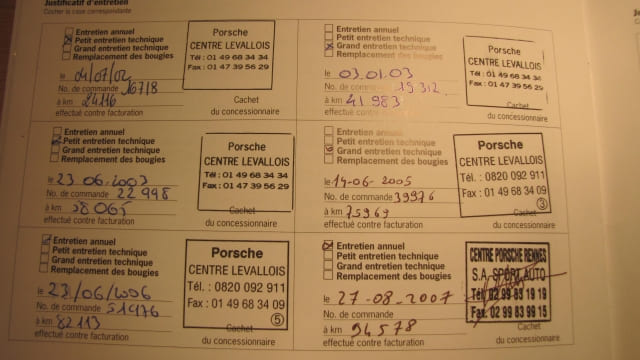 Justificatif d'entretien
Cocher la case correspondante
Entretien annuel
Petit entretien technique
Grand entretien technique
Remplacement des bougies
le 01/07/02
No. de commande 16718
à km 24116
effectué contre facturation
Porsche
CENTRE LEVALLOIS
Tél : 01 49 68 34 34
Fax : 01 47 39 56 29
Cachet
du concessionnaire
Entretien annuel
Petit entretien technique
Grand entretien technique
Remplacement des bougies
le 03.01.03
No. de commande 19312
à km 41 983
effectué contre facturation
Porsche
CENTRE LEVALLOIS
Tél : 01 49 68 34 34
Fax : 01 47 39 56 29
Cachet
du concessionnaire
Entretien annuel
Petit entretien technique
Grand entretien technique
Remplacement des bougies
le 23.06.2003
No. de commande 22 998
à km 58 065
effectué contre facturation
Porsche
CENTRE LEVALLOIS
Tél : 01 49 68 34 34
Fax : 01 47 39 56 29
Cachet
du concessionnaire
Entretien annuel
Petit entretien technique
Grand entretien technique
Remplacement des bougies
le 14-06-2005
No. de commande 39976
à km 75969
effectué contre facturation
Porsche
CENTRE LEVALLOIS
Tél. : 0820 092 911
Fax : 01 49 68 34 09
3
Cachet
du concessionnaire
Entretien annuel
Petit entretien technique
Grand entretien technique
Remplacement des bougies
le 23/06/2006
No. de commande 51976
à km 82 113
effectué contre facturation
Porsche
CENTRE LEVALLOIS
Tél. : 0820 092 911
Fax : 01 49 68 34 09
5
Cachet
du concessionnaire
Entretien annuel
Petit entretien technique
Grand entretien technique
Remplacement des bougies
le 27-08-2007
No. de commande
à km 94578
effectué contre facturation
CENTRE PORSCHE RENNES
S.A. SPORT AUTO
Tél. 02 99 83 19 19
Fax. 02 99 83 99 15
Cachet
du concessionnaire